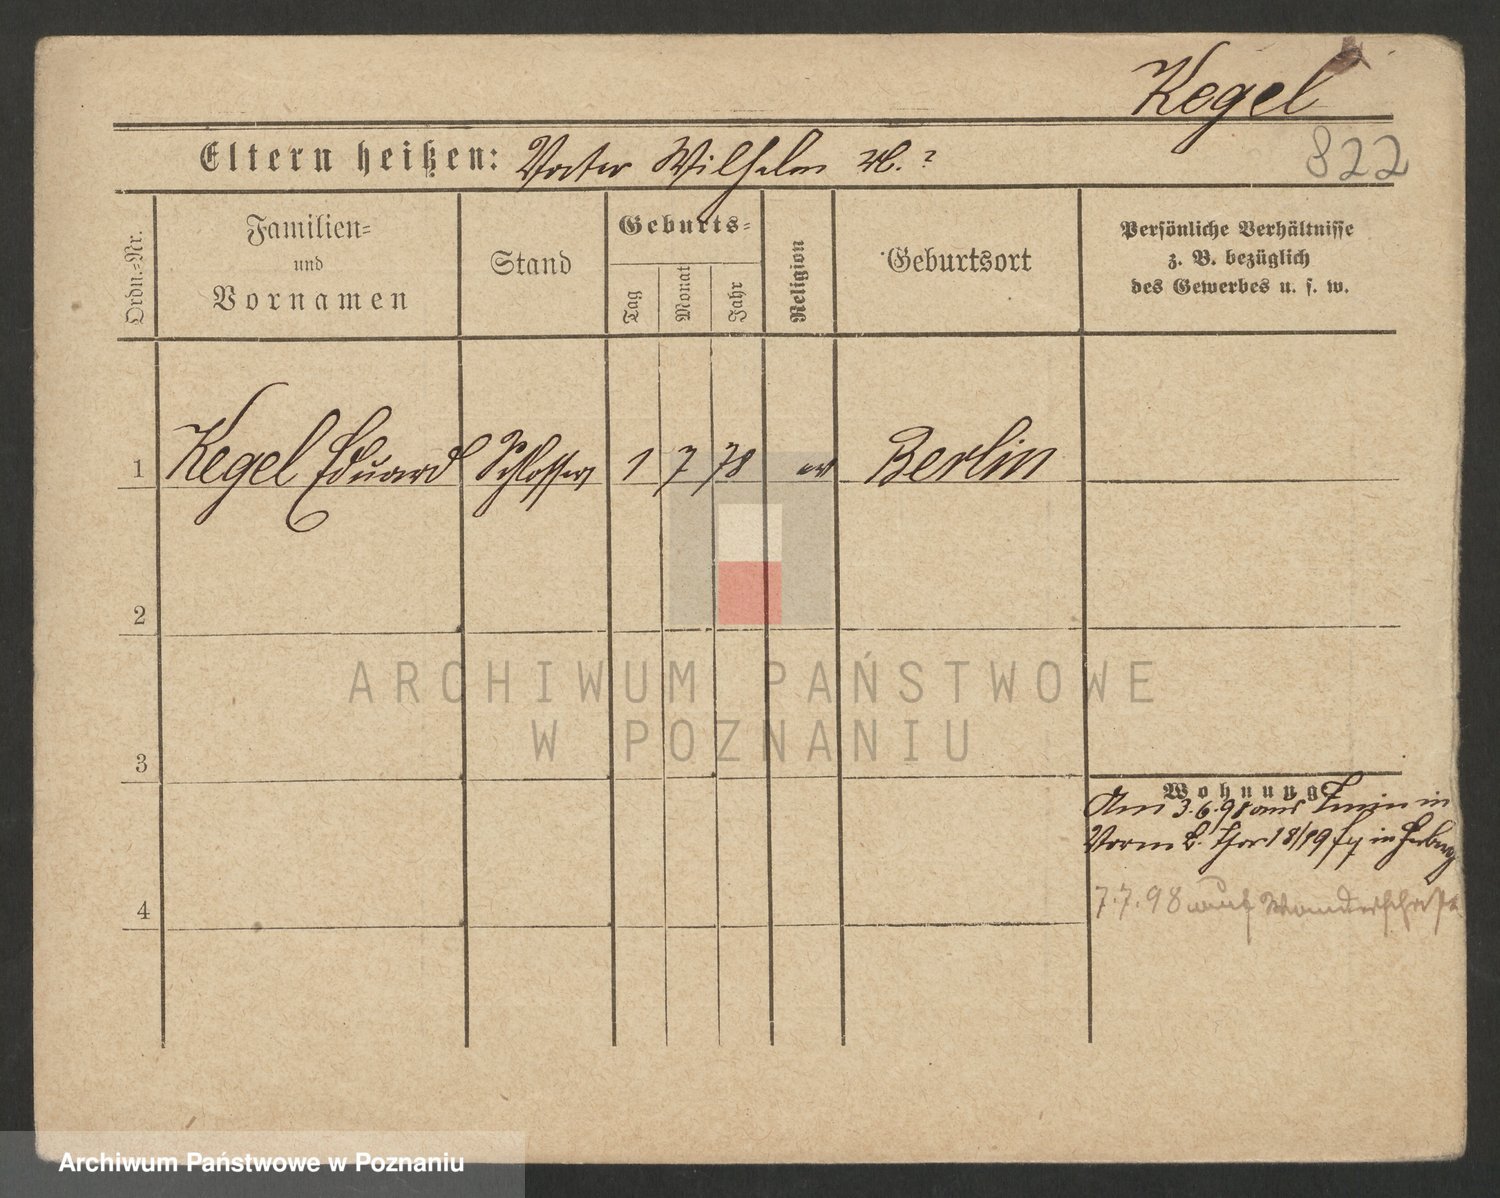 Kegel
822
Eltern heißen: Vater Wilhelm M. ?
Ordn.=Nr.
Familien=
und
Vornamen
Stand
Geburts=
Tag
Monat
Jahr
Religion
Geburtsort
Persönliche Verhältnisse
z. B. bezüglich
des Gewerbes u. s. w.
1 Kegel Eduard Schlosser 1 7 78 ev Berlin
2
3
4
Wohnung
Am 3.6.98 aus in
Vorm B. Thor 18/19 in
7.7.98 auf Wanderschaft
ARCHIWUM PAŃSTWOWE
W POZNANIU
Archiwum Państwowe w Poznaniu